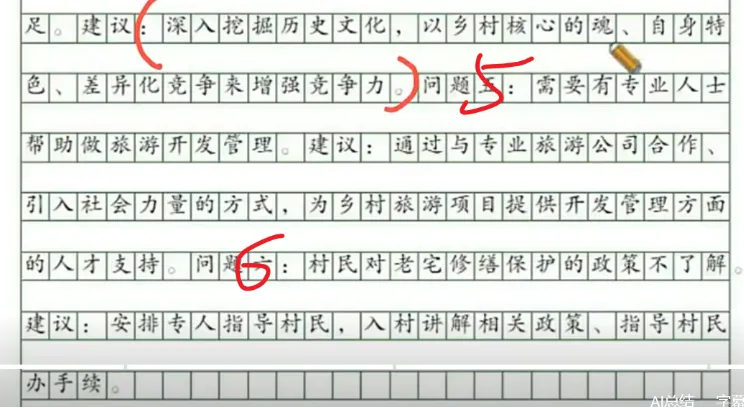 足。建议：深入挖掘历史文化，以乡村核心的魂、自身特
色、差异化竞争来增强竞争力。问题五：需要有专业人士
帮助做旅游开发管理。建议：通过与专业旅游公司合作、
引入社会力量的方式，为乡村旅游项目提供开发管理方面
的人才支持。问题六：村民对老宅修缮保护的政策不了解。
建议：安排专人指导村民，入村讲解相关政策、指导村民
办手续。
5
6
AI总结 字幕